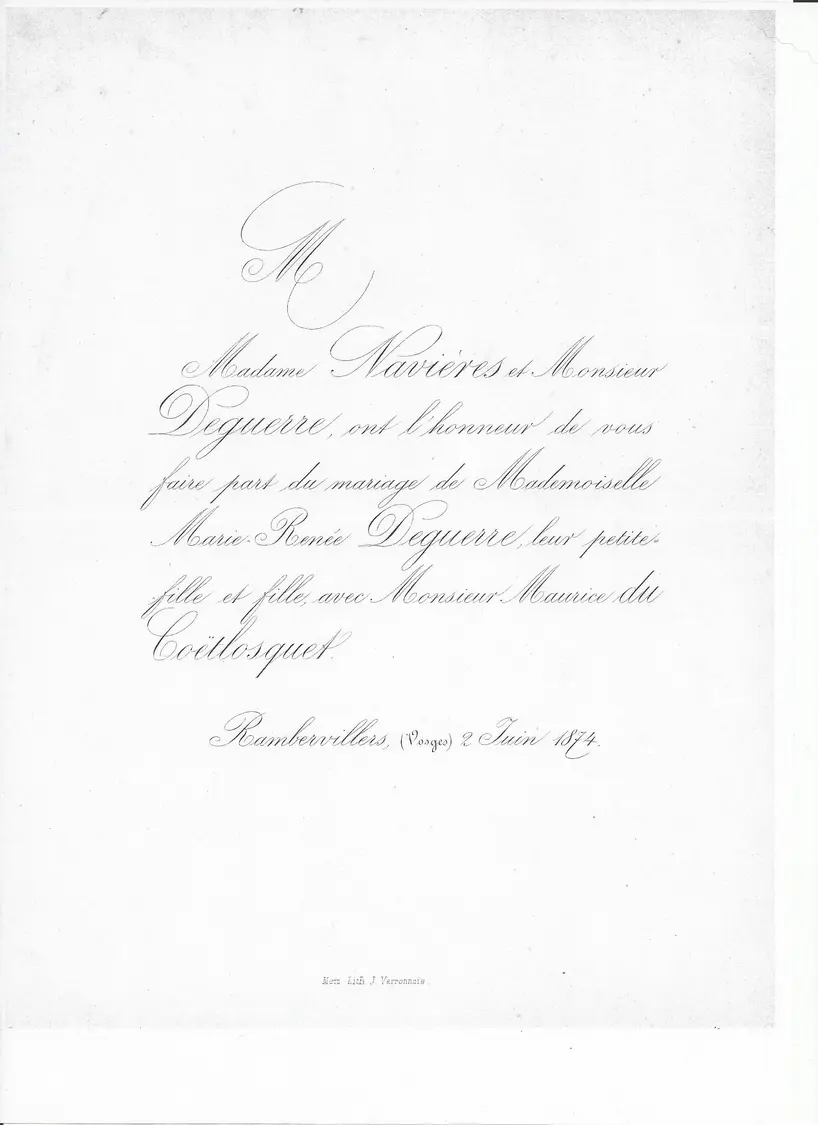 M
Madame Navières et Monsieur
Deguerre, ont l'honneur de vous
faire part du mariage de Mademoiselle
Marie-Renée Deguerre, leur petite-
fille et fille, avec Monsieur Maurice du
Coëtlosquet.
Rambervillers, (Vosges) 2 Juin 1874.
Metz Lith. J. Verronnais.